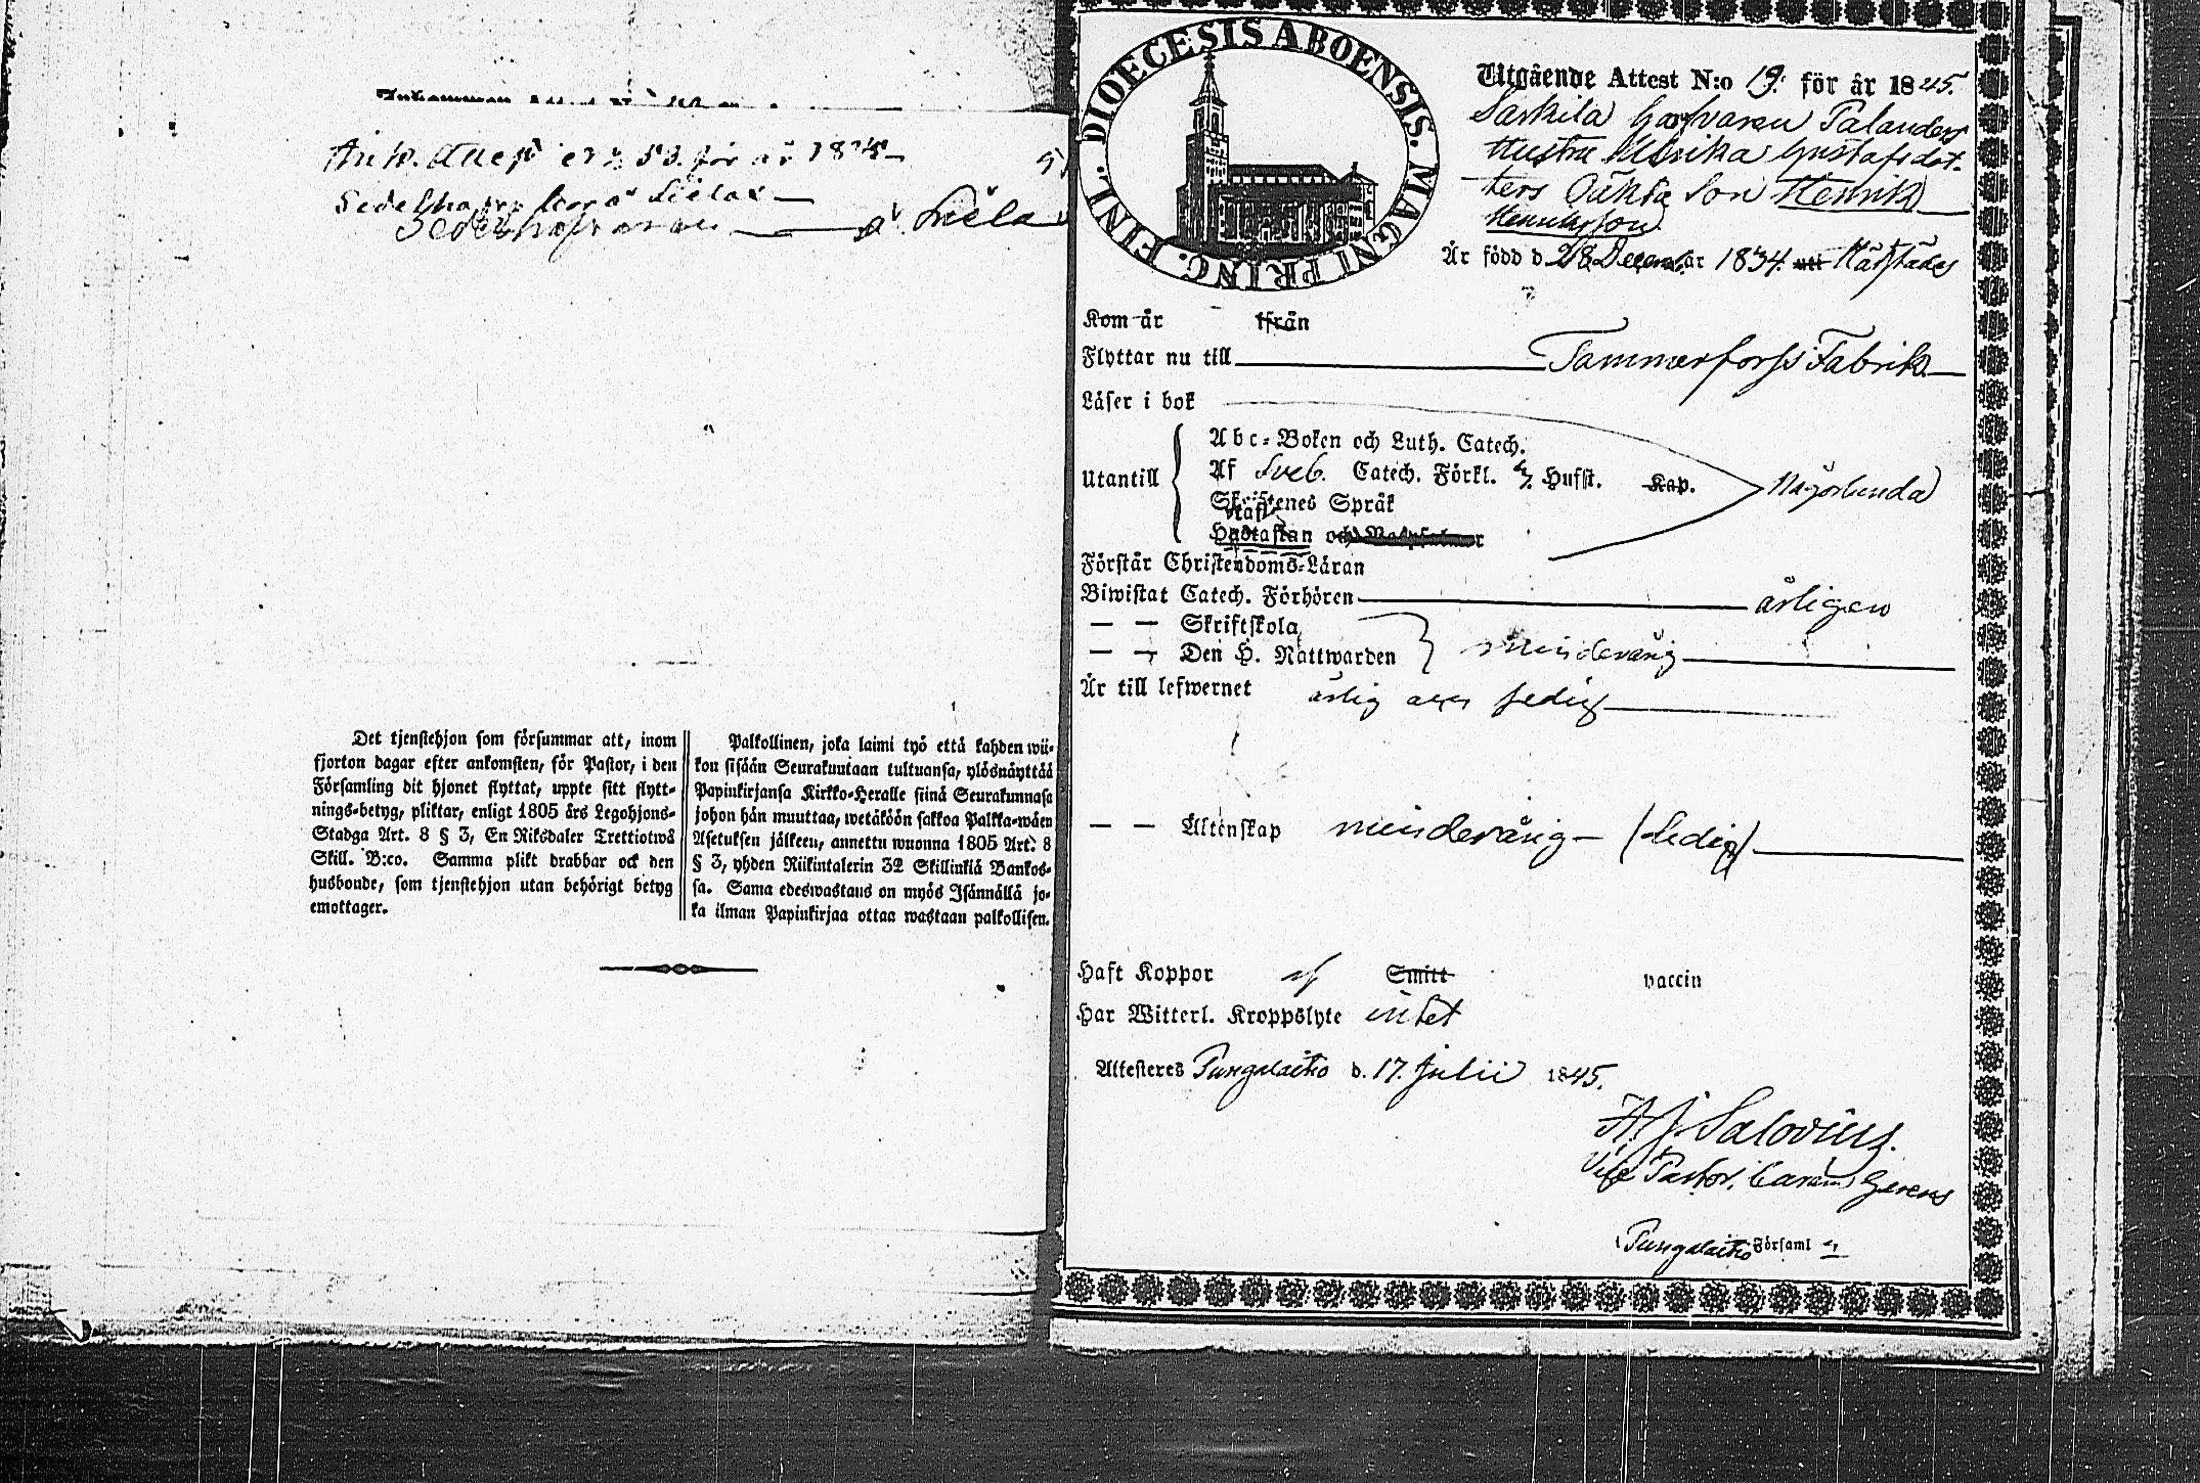 för år
Sedelhafvaren
Det tjenstehjon som försummar att, inom
fjorton dagar efter ankomsten, för Pastor, i den
Församling dit hjonet flyttat, uppte sitt flytt-
nings-betyg, pliktar, enligt 1805 års Legohjons-
Stadga Art. 8 § 3, En Riksdaler Trettiotwå
Skill. B:co. Samma plikt drabbar ock den
husbonde, som tjenstehjon utan behörigt betyg
emottager.
Palkollinen, joka laimi työ että kahden wii-
kon sisään Seurakuntaan tultuansa, ylösnäyttää
Papinkirjansa Kirkko-Heralle siinä Seurakunnasa
johon hän muuttaa, wetäköön sakkoa Palkka-wäen
Asetuksen jälkeen, annettu wuonna 1805 Art. 8
§ 3, yhden Riikintalerin 32 Skillinkiä Bankos-
sa. Sama edeswastaus on myös Isännällä jo-
ka ilman Papinkirjaa ottaa wastaan palkollisen.
DIOECESIS ABOENSIS. MAGNI PRINC. FINL.
Utgående Attest N:o 19. för år 1845.
Palanders
Hustru Ulrika Gustafsdot-
ters Oäkta Son Henrik
Henriksson
Är född d 28 Decemb. år 1834. uti
Kom år ifrån
Flyttar nu till Tammerforss Fabrik
Läser i bok
Abc-Boken och Luth. Catech.
Utantill Af Sveb. Catech. Förkl. Hufst. Kap. Någorlunda
Skriftenes Språk
Hustaflan och
Förstår Christendoms-Läran
Biwistat Catech. Förhören årligen
— — Skriftskola
— — Den H. Nattwarden minderårig
Är till lefwernet ärlig
— — Äktenskap minderårig – (Ledig)
Haft Koppor af Smitt vaccin
Har Witterl. Kroppslyte intet
Attesteres Pungalaitio d. 17. Julii 1845.
Salovius.
Vice Pastor. Gerens
Pungalaitio Församl